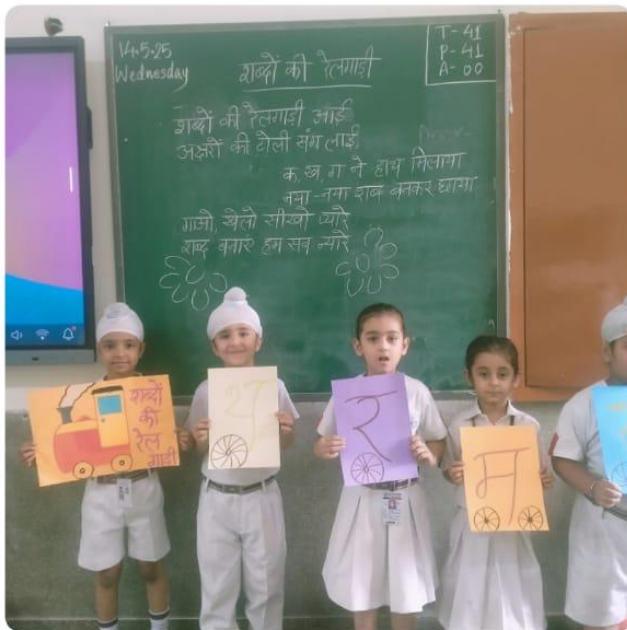 14.5.25
Wednesday
शब्दों की रेलगाड़ी
T-41
P-41
A-00
शब्दों की रेलगाड़ी आई
अक्षरों की टोली संग लाई
क, ख, ग ने हाथ मिलाया
नया-नया शब्द बनकर छाया
गाओ, खेलो सीखो प्यारे
शब्द बनाए हम सब न्यारे
शब्दों
की
रेल
गाड़ी
थ
र
म